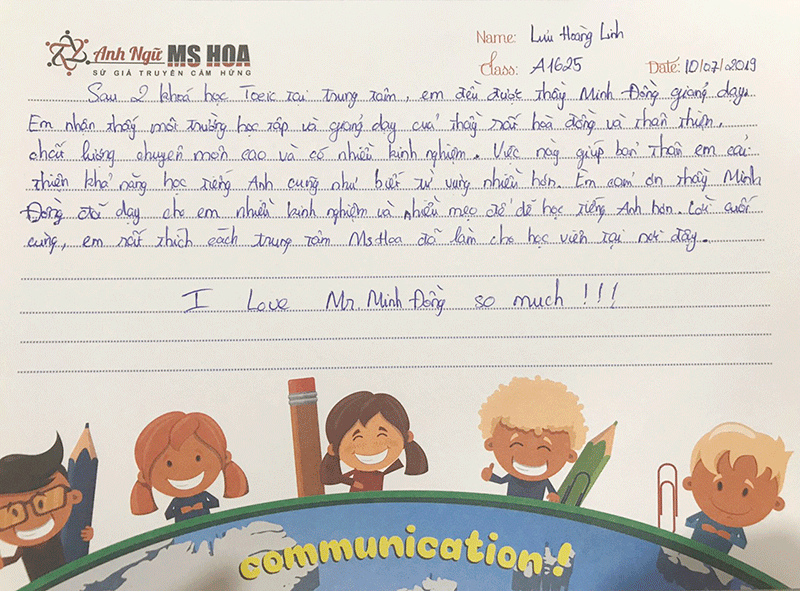 Anh Ngữ MS HOA
SỨ GIẢ TRUYỀN CẢM HỨNG
Name: Lưu Hoàng Linh
Class: A1625 Date: 10/07/2019
Sau 2 khoá học Toeic tại trung tâm, em đều được thầy Minh Đồng giảng dạy.
Em nhận thấy môi trường học tập và giảng dạy của thầy rất hoà đồng và thân thiện,
chất lượng chuyên môn cao và có nhiều kinh nghiệm. Việc này giúp bản thân em cải
thiện khả năng học tiếng Anh cũng như biết từ vựng nhiều hơn. Em cảm ơn thầy Minh
Đồng đã dạy cho em nhiều kinh nghiệm và nhiều mẹo để dễ học tiếng Anh hơn. Lời cuối
cùng, em rất thích cách trung tâm Ms Hoa đã làm cho học viên tại nơi đây.
I Love Mr. Minh Đồng so much !!!
communication!